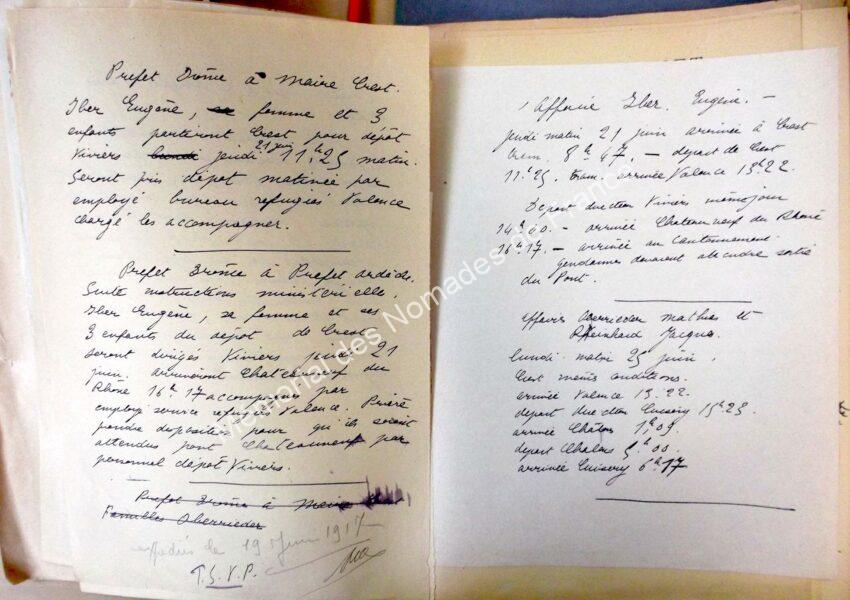 Prefet Drôme à Maire Crest.
Iber Eugène, sa femme et 3
enfants partiront Crest pour dépôt
Viviers lundi jeudi 21 juin 11h25 matin.
Seront pris dépôt matinée par
employé bureau refugiés Valence
chargé les accompagner.
Prefet Drôme à Prefet ardèche.
Suite instructions ministérielle,
Iber Eugène, sa femme et ses
3 enfants du depot de Crest
seront dirigés Viviers jeudi 21
juin. arriveront Chateauneuf du
Rhône 16h17 accompagnés par
employé service refugiés Valence. Prière
prendre dispositions pour qu'ils soient
attendus pont Chateauneuf par
personnel dépôt Viviers.
Prefet Drôme à Maire
Familles Oberrieder
expédiés le 19 juin 1917
T.S.V.P.
Affaire Iber Eugène. -
Jeudi matin 21 juin arrivée à Crest
tram 8h47. - depart de Crest
11h25. tram. arrivée Valence 13h22.
Depart direction Viviers même jour
14h00. - arrivée Chateauneuf du Rhône
16h17. - arrivée au Cantonnement
gendarmes devront attendre sortie
du Pont.
affaires Oberrieder Mathias et
Rheinhard Jacques.
lundi matin 25 juin,
Crest mêmes conditions.
arrivée Valence 13.22.
depart direction Cuisery 15h23.
arrivée Chalons 1h09.
depart Chalons 5h00.
arrivée Cuisery 6h17
Mémorial des Nomades de France